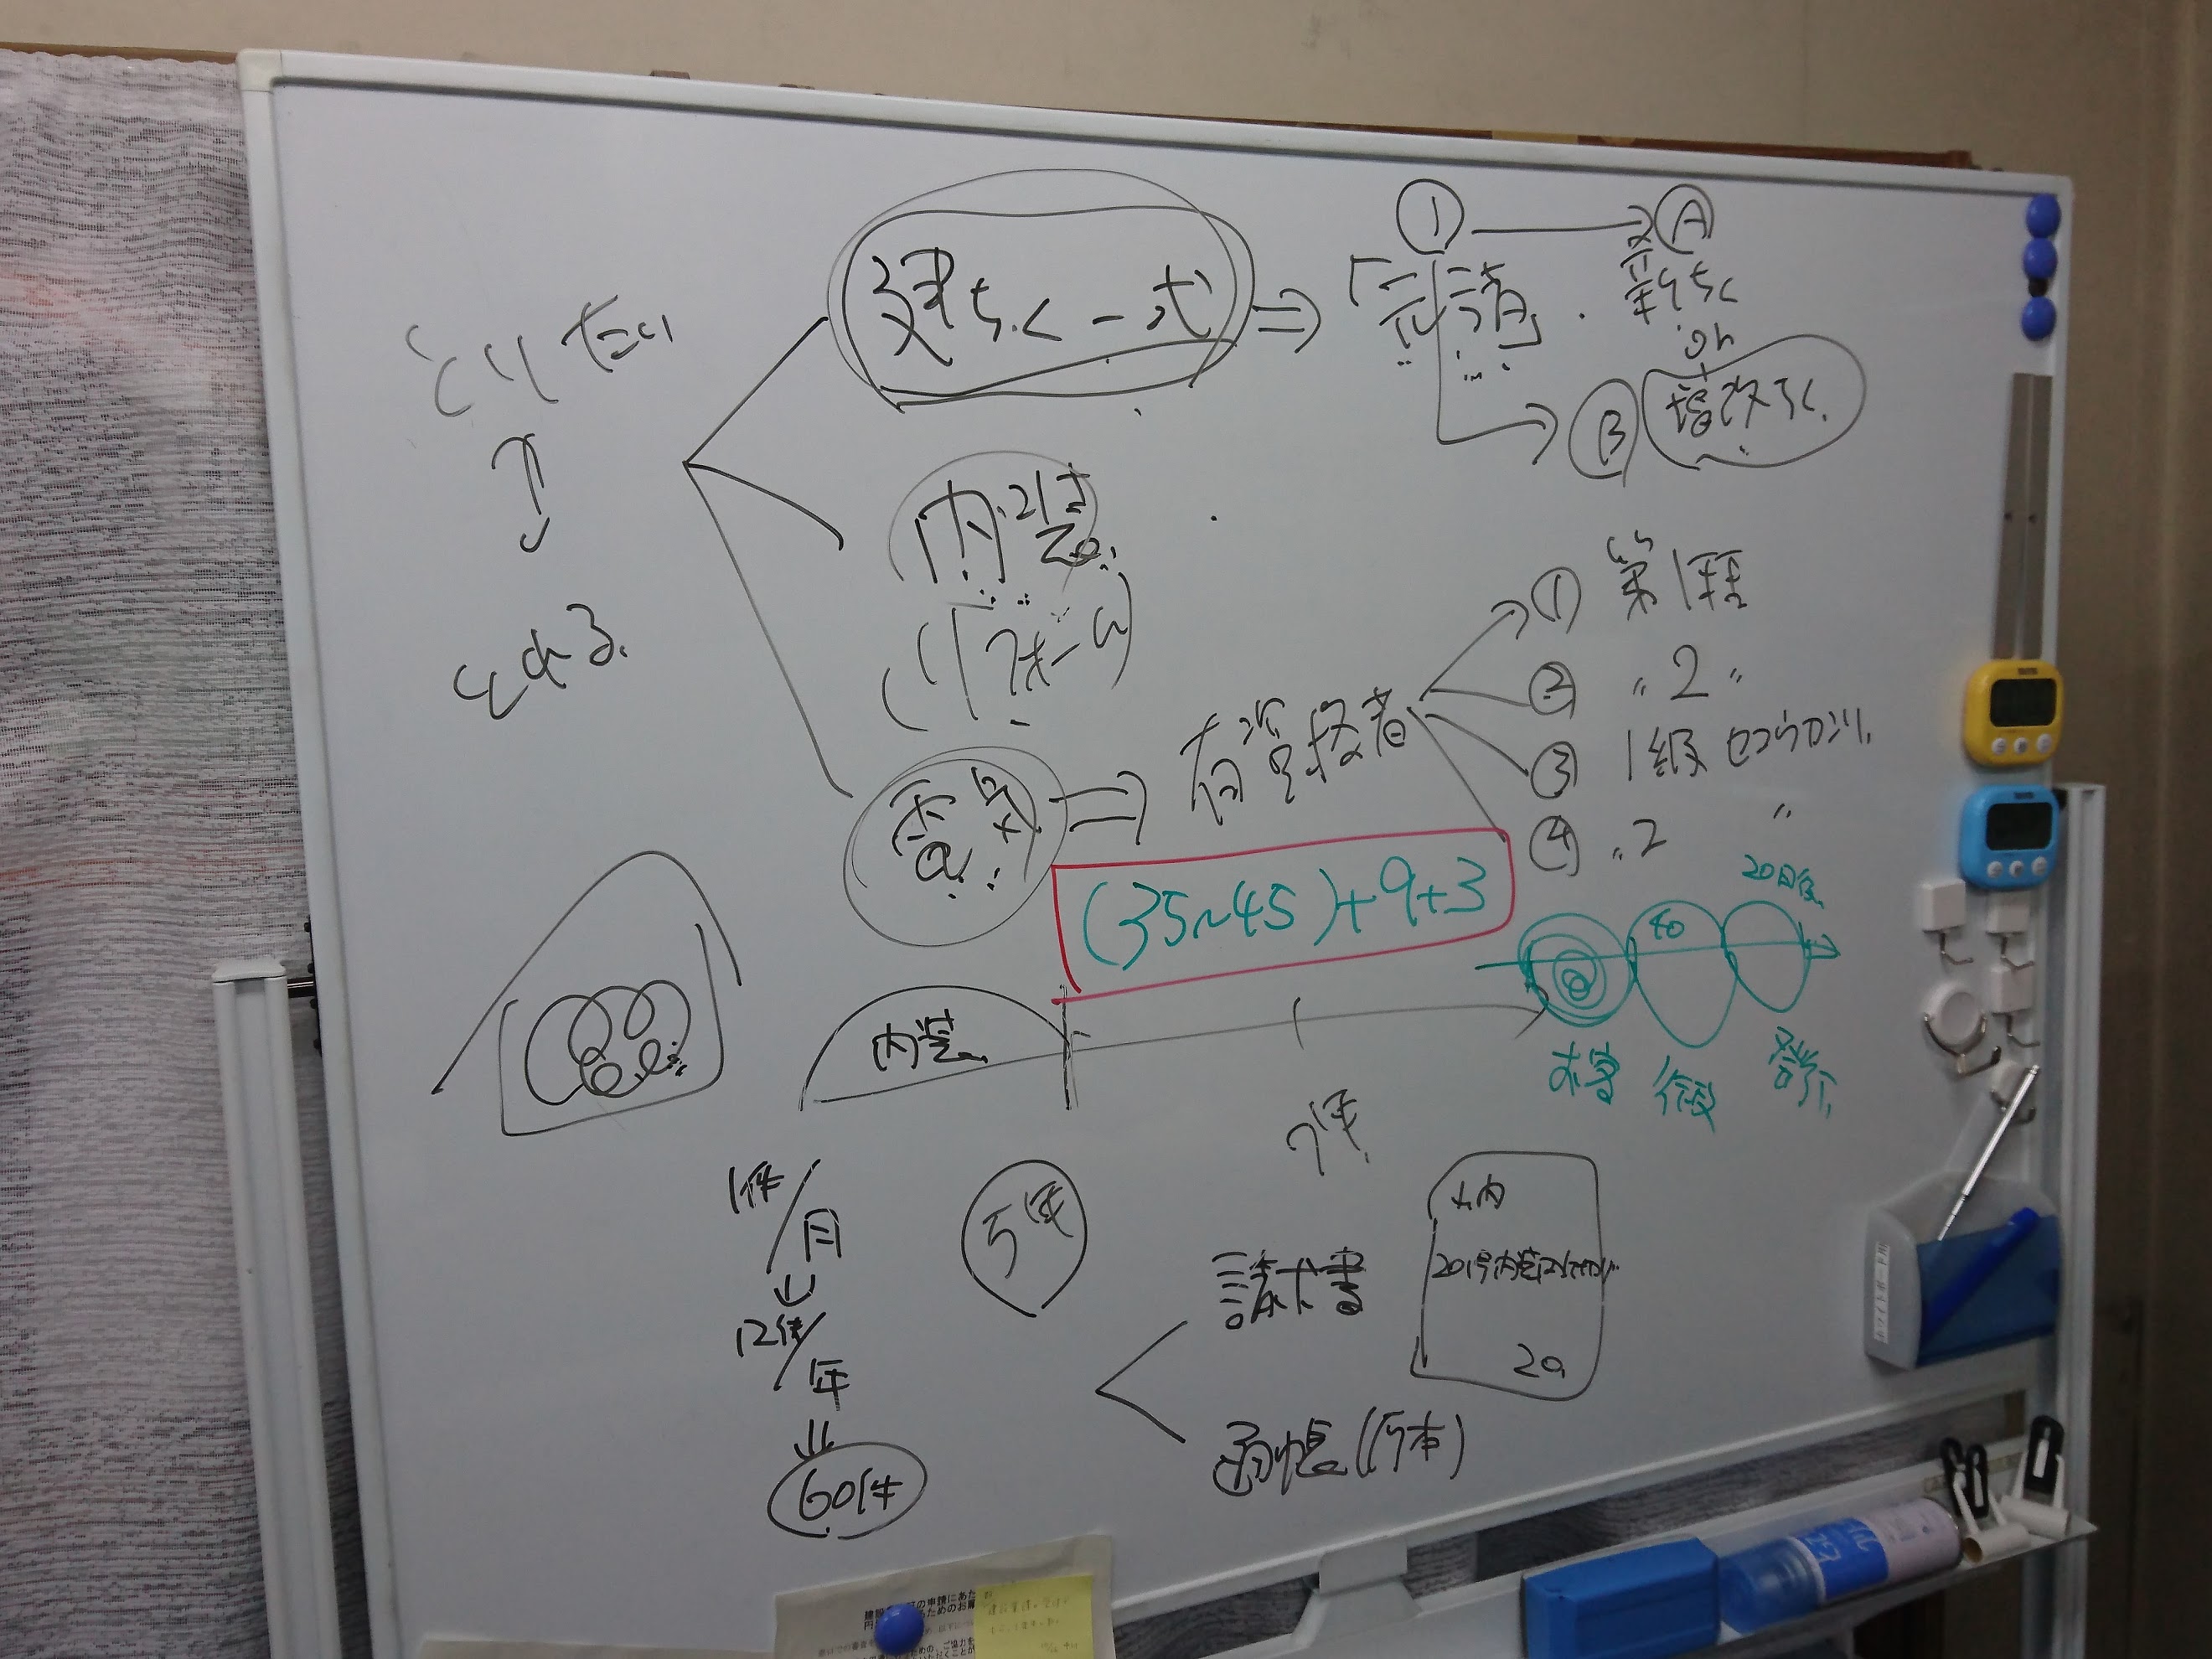 とりたい
とれる
建ちく一式
⇒
「元請」
①
→
Ⓐ
新ちく
or
Ⓑ
増改ちく
内装
(リフォーム)
電気
⇒
有資格者
① 第1種
② 〃2〃
③ 1級セコウカンリ
④ 〃2 〃
(35~45)+9+3
20日後
40
内装
1件/月
↓
12件/年
⇓
60件
5年
7年
請求書
201号内装
20
通帳(原本)